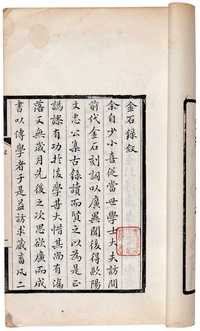 金石錄叙
余自少小喜從當世學士大夫訪問
前代金石刻詞以廣異聞後得歐陽
文忠公集古錄讀而賢之以為是正
譌謬有功於後學甚大惜其尚有漏
落又無歲月先後之次思欲廣而成
書以傳學者于是益訪求藏畜凡二